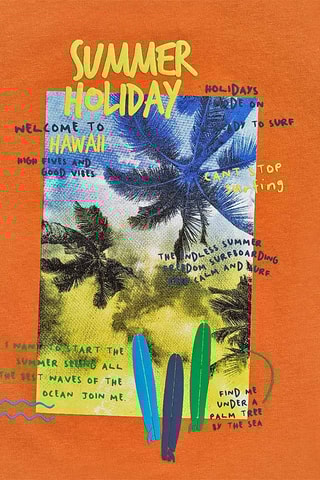 SUMMER
HOLIDAY
HOLIDAYS
MODE ON
READY TO SURF
WELCOME TO
HAWAII
HIGH FIVES AND
GOOD VIBES
CAN'T STOP
surfing
THE ENDLESS SUMMER
FREEDOM SURFBOARDING
CALM AND SURF
I WANT TO START THE
SUMMER SEEING ALL
THE BEST WAVES OF THE
OCEAN JOIN ME
FIND ME
UNDER A
PALM TREE
BY THE SEA